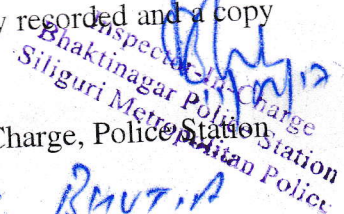 y recorded and a copy
Inspector-In-Charge
Bhaktinagar Police Station
Siliguri Metropolitan Police
Charge, Police Station